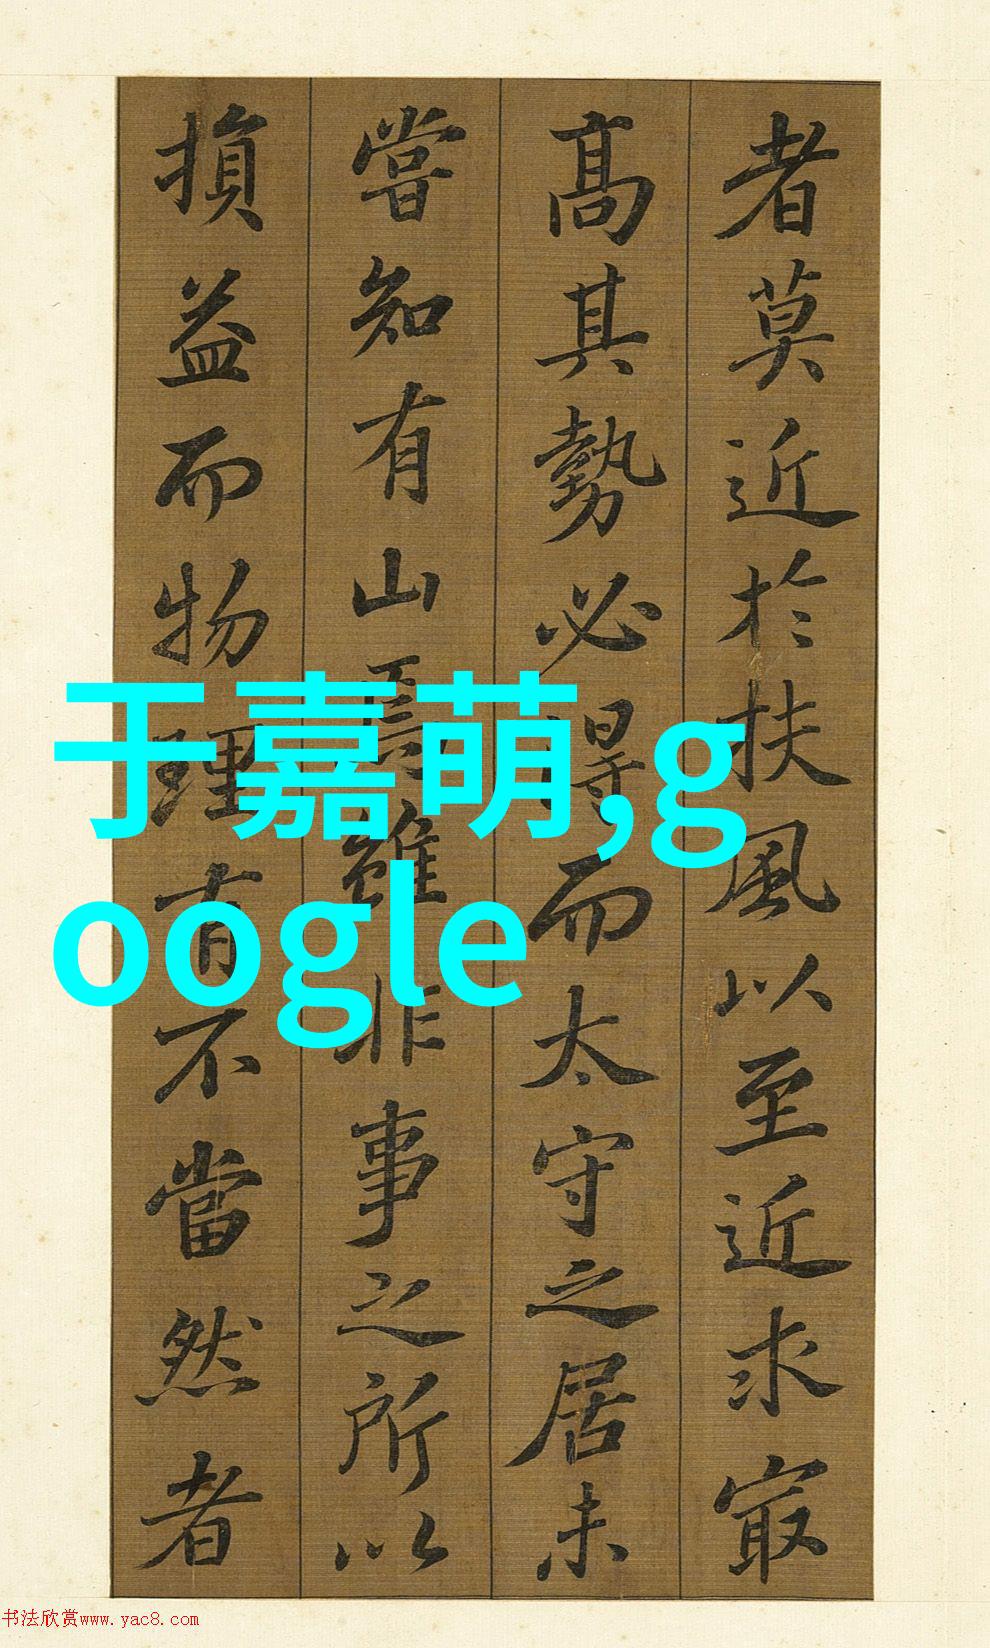 者莫近於扶風以至近求寂
高其勢必得而太守之居未
嘗知有山焉雖非事之所以
損益而物理有不當然者
于嘉萌,g
oogle
书法欣赏www.yac8.com